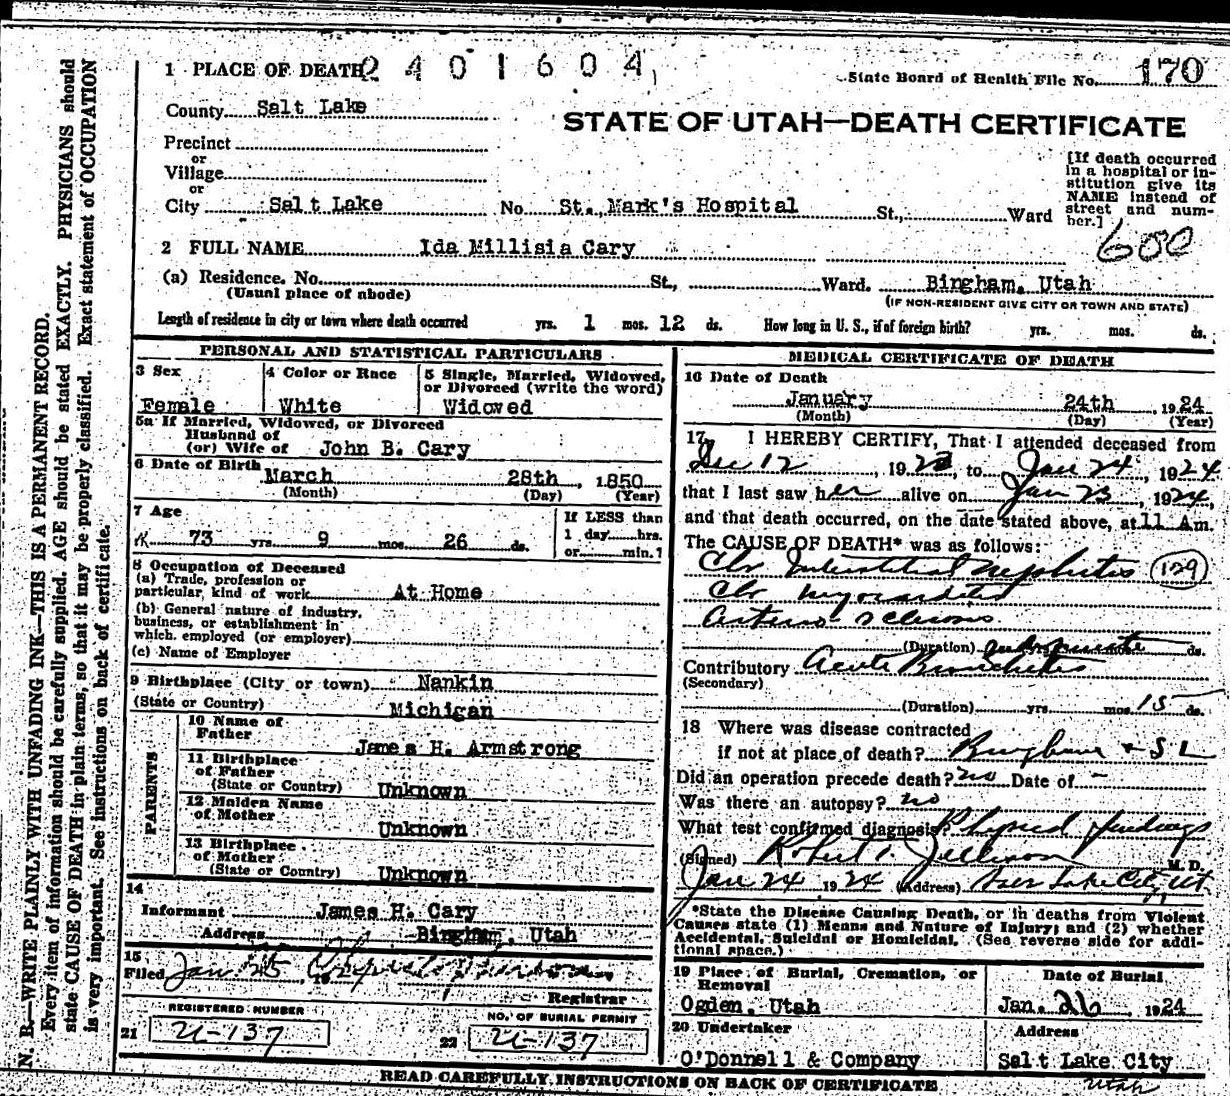 1 PLACE OF DEATH 2401604
State Board of Health File No. 170
County Salt Lake
STATE OF UTAH—DEATH CERTIFICATE
Precinct
or
Village
or
City Salt Lake No. St. Mark's Hospital St., Ward
[If death occurred
in a hospital or in-
stitution give its
NAME instead of
street and num-
ber.]
600
2 FULL NAME Ida Millisia Cary
(a) Residence. No. St., Ward. Bingham, Utah
(Usual place of abode)
(IF NON-RESIDENT GIVE CITY OR TOWN AND STATE)
Length of residence in city or town where death occurred yrs. 1 mos. 12 ds. How long in U. S., if of foreign birth? yrs. mos. ds.
PERSONAL AND STATISTICAL PARTICULARS
3 Sex
Female
4 Color or Race
White
5 Single, Married, Widowed,
or Divorced (write the word)
Widowed
5a If Married, Widowed, or Divorced
Husband of
(or) Wife of John B. Cary
6 Date of Birth March 28th, 1850
(Month) (Day) (Year)
7 Age
73 yrs. 9 mos. 26 ds.
If LESS than
1 day hrs.
or min.?
8 Occupation of Deceased
(a) Trade, profession or
particular, kind of work At Home
(b) General nature of industry,
business, or establishment in
which employed (or employer)
(c) Name of Employer
9 Birthplace (City or town) Nankin
(State or Country) Michigan
PARENTS
10 Name of
Father James H. Armstrong
11 Birthplace
of Father
(State or Country) Unknown
12 Maiden Name
of Mother Unknown
13 Birthplace
of Mother
(State or Country) Unknown
14
Informant James H. Cary
Address Bingham, Utah
15
Filed Jan 25, 19
Registrar
REGISTERED NUMBER
21 U-137
NO. OF BURIAL PERMIT
22 U-137
MEDICAL CERTIFICATE OF DEATH
16 Date of Death
January 24th, 1924
(Month) (Day) (Year)
17 I HEREBY CERTIFY, That I attended deceased from
Dec 12, 1923, to Jan 24, 1924
that I last saw her alive on Jan 23, 1924,
and that death occurred, on the date stated above, at 11 Am.
The CAUSE OF DEATH* was as follows:
Chr Interstitial Nephritis 129
Chr myocarditis
Arterio sclerosis
(Duration) indefinite ds.
Contributory Acute Bronchitis
(Secondary)
(Duration) yrs. mos. 15 ds.
18 Where was disease contracted
if not at place of death? Bingham + S L
Did an operation precede death? no Date of -
Was there an autopsy? no
What test confirmed diagnosis? Physical findings
(Signed) Robert T. Jellison M. D.
Jan 24 1924 (Address) Salt Lake City, Ut
*State the Disease Causing Death, or in deaths from Violent
Causes state (1) Means and Nature of Injury; and (2) whether
Accidental, Suicidal or Homicidal. (See reverse side for addi-
tional space.)
19 Place of Burial, Cremation, or
Removal
Ogden, Utah
Date of Burial
Jan. 26, 1924
20 Undertaker
O'Donnell & Company
Address
Salt Lake City
Utah
READ CAREFULLY INSTRUCTIONS ON BACK OF CERTIFICATE
N. B.—WRITE PLAINLY WITH UNFADING INK—THIS IS A PERMANENT RECORD.
Every item of information should be carefully supplied. AGE should be stated EXACTLY. PHYSICIANS should
state CAUSE OF DEATH in plain terms, so that it may be properly classified. Exact statement of OCCUPATION
is very important. See instructions on back of certificate.